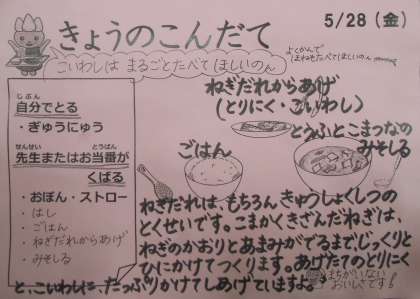 きょうのこんだて
5/28（金）
こいわしは まるごとたべてほしいのん
よくかんで
ほねもたべてほしいのん
自分でとる
じぶん
・ぎゅうにゅう
せんせい とうばん
先生またはお当番が
くばる
・おぼん・ストロー
・はし
・ごはん
・ねぎだれからあげ
・みそしる
ねぎだれからあげ
（とりにく・こいわし）
とうふとこまつなの
みそしる
ごはん
ねぎだれは、もちろん きゅうしょくしつの
とくせいです。こまかくきざんだねぎは、
ねぎのかおりとあまみがでるまで、じっくりと
ひにかけてつくります。あげたてのとりにく
と、こいわしに、たっぷりかけてしあげていますよ。
まちがいない
おいしさです！